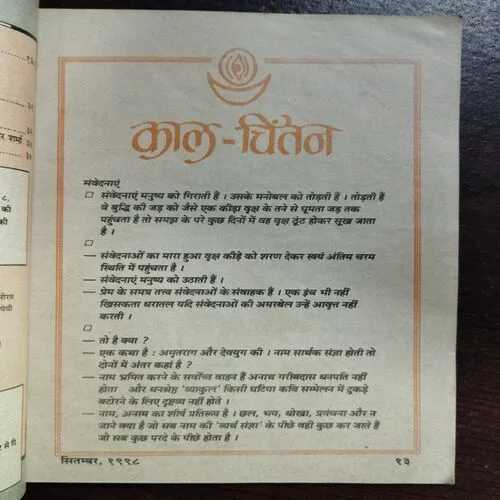 काल-चिंतन
संवेदनाएं
□ संवेदनाएं मनुष्य को गिराती हैं । उसके मनोबल को तोड़ती हैं । तोड़ती हैं
वे बुद्धि की जड़ को जैसे एक कीड़ा वृक्ष के तने से घूमता जड़ तक
पहुंचता है तो समझ के परे कुछ दिनों में वह वृक्ष ठूंठ होकर सूख जाता
है ।
□
— संवेदनाओं का मारा हुआ वृक्ष कीड़े को शरण देकर स्वयं अंतिम चरम
स्थिति में पहुंचता है ।
— संवेदनाएं मनुष्य को उठाती हैं ।
— प्रेम के समग्र तत्त्व संवेदनाओं के संवाहक हैं । एक इंच भी नहीं
खिसकता धरातल यदि संवेदनाओं की अमरबेल उन्हें आवृत्त नहीं
करती ।
□
— तो है क्या ?
— एक कथा है : अमृतराग और देवयुग की । नाम सार्थक संज्ञा होती तो
दोनों में अंतर कहां है ?
— नाम भ्रमित करने के सर्वोच्च वाहन हैं अनाथ गरीबदास धनपति नहीं
होता और धनश्रेष्ठ 'व्याकुल' किसी घटिया कवि सम्मेलन में टुकड़े
बटोरने के लिए दृष्टव्य नहीं होते ।
— नाम, अनाम का शीर्ष प्रतिरूप है । छल, भय, धोखा, प्रवंचना और न
जाने क्या है जो सब नाम की 'व्यर्थ संज्ञा' के पीछे वही कुछ कर जाते हैं
जो सब कुछ परदे के पीछे होता है ।
सितम्बर, १९९८
१३
र शर्मा